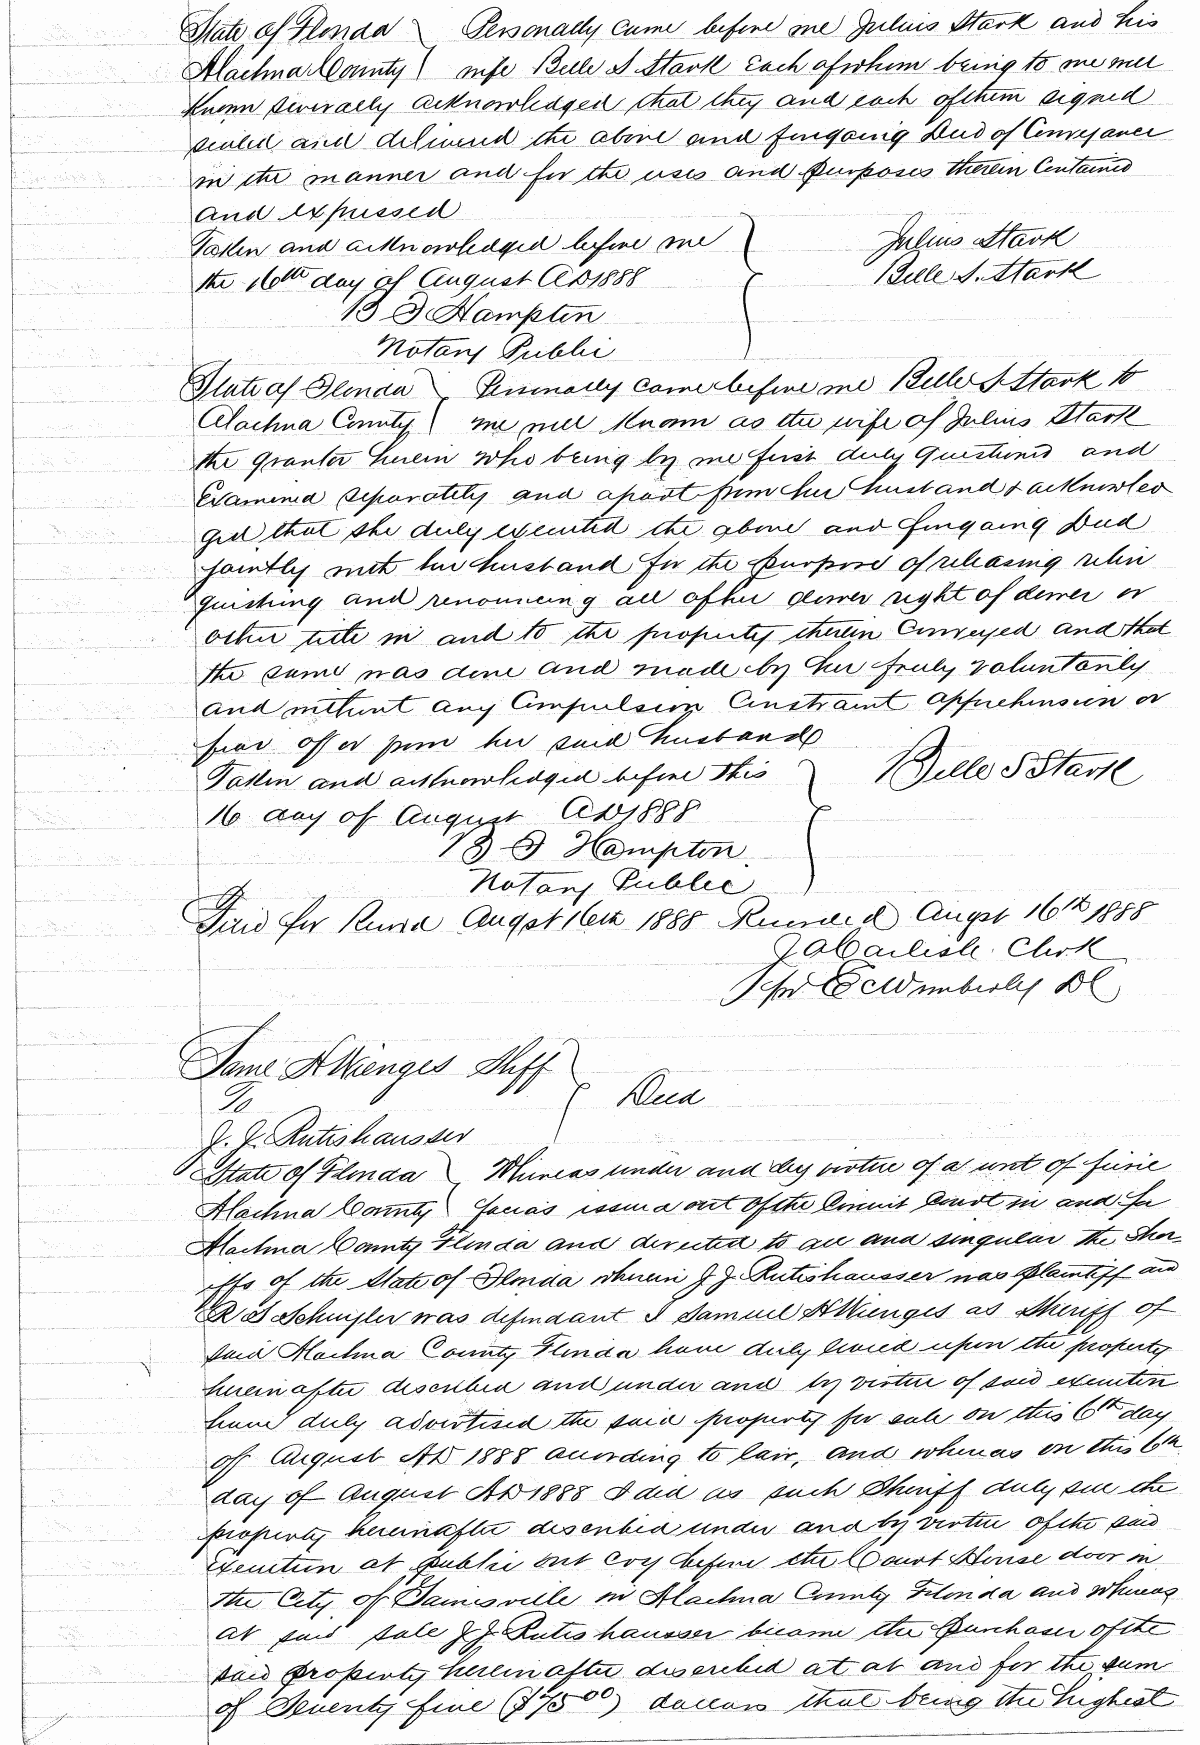 State of Florida } Personally came before me Julius Stark and his
Alachua County } wife Belle S Stark Each of whom being to me well
Known severally acknowledged that they and each of them signed
sealed and delivered the above and foregoing Deed of Conveyance
in the manner and for the uses and purposes therein Contained
and expressed
Taken and acknowledged before me
the 16th day of August AD 1888
Julius Stark
Belle S. Stark
B F Hampton
Notary Public
State of Florida } Personally came before me Belle S Stark to
Alachua County } me well Known as the wife of Julius Stark
the grantor herein who being by me first duly questioned and
Examined separately and apart from her husband & acknowled
ged that she duly executed the above and foregoing Deed
jointly with her husband for the purpose of releasing relin
quishing and renouncing all of her dower right of dower or
other title in and to the property therein Conveyed and that
the same was done and made by her freely voluntarily
and without any Compulsion Constraint apprehension or
fear of or from her said husband
Taken and acknowledged before this
16 day of August AD 1888
Belle S Stark
B F Hampton
Notary Public
Filed for Record Augst 16th 1888 Recorded Augst 16th 1888
J A Carlisle. Clerk
Per E C Wimberly DC
Same H Wienges Shff
To
Deed
J. J. Rutishausser
State of Florida } Whereas under and by virtue of a writ of fierie
Alachua County } facias issued out of the Circuit Court in and for
Alachua County Florida and directed to all and singular the Sher-
iffs of the State of Florida wherein J J Rutishausser was plaintiff and
R S Schuyler was defendant I Samuel H Wienges as Sheriff of
said Alachua County Florida have duly levied upon the property
hereinafter described and under and by virtue of said execution
have duly advertised the said property for sale on this 6th day
of August AD 1888 according to law, and whereas on this 6th
day of August AD 1888 I did as such Sheriff duly sell the
property hereinafter described under and by virtue of the said
Execution at public out cry before the Court House door in
the City of Gainesville in Alachua County Florida and whereas
at said sale J J Rutishausser became the purchaser of the
said property herein after described at at and for the sum
of Seventy five ($75 00) dollars that being the highest